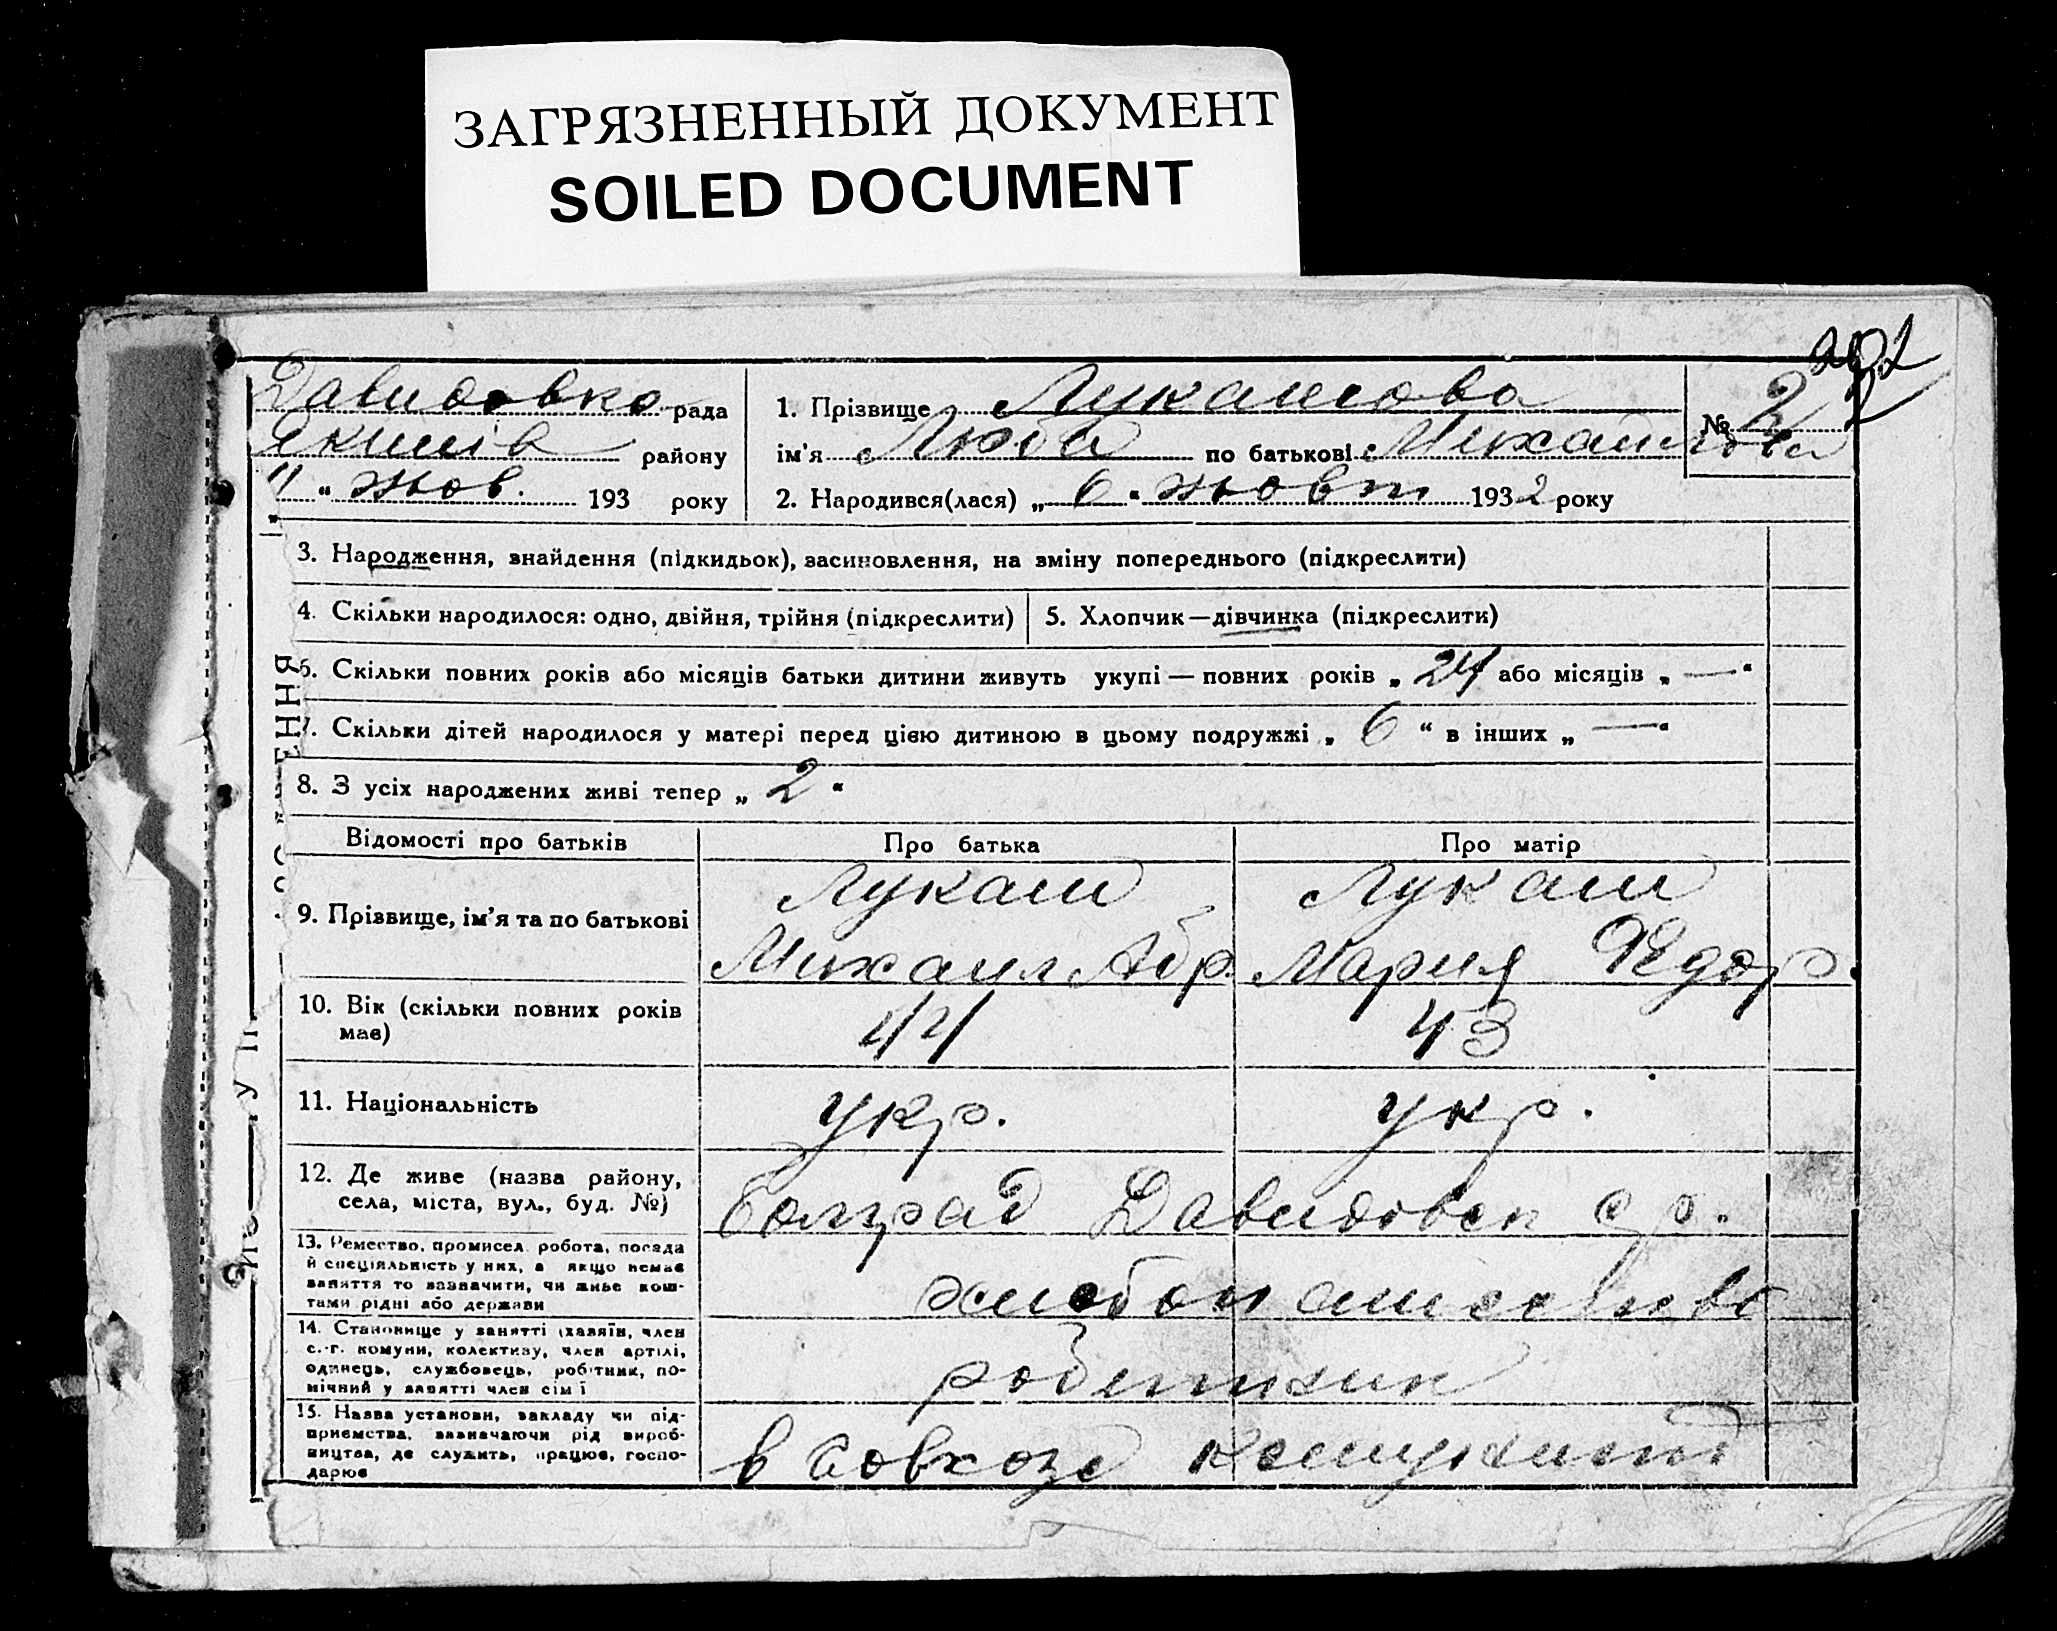 ЗАГРЯЗНЕННЫЙ ДОКУМЕНТ
SOILED DOCUMENT
Давидовко рада
Якимів району
„ 11 “ жов. 193 року
1. Прізвище Лукашова № 2
ім'я Люба по батькові Михайлова
2. Народився(лася) „ 6 “ жовт 1932 року
3. Народження, знайдення (підкидьок), засиновлення, на зміну попереднього (підкреслити)
4. Скільки народилося: одно, двійня, трійня (підкреслити) 5. Хлопчик—дівчинка (підкреслити)
6. Скільки повних років або місяців батьки дитини живуть укупі — повних років „ 24 або місяців „ — “
7. Скільки дітей народилося у матері перед цією дитиною в цьому подружжі „ 6 “ в інших „ — “
8. З усіх народжених живі тепер „ 2 “
Відомості про батьків Про батька Про матір
9. Прізвище, ім'я та по батькові
Лукаш Лукаш
Михаил Абр. Мария Федор.
10. Вік (скільки повних років 44 43
має)
11. Національність укр. укр.
12. Де живе (назва району,
села, міста, вул., буд. №) Болград Давидовск с р.
13. Ремество, промисел, робота, посада
й спеціяльність у них, а якщо немає
заняття то зазначити, чи живе кош-
тами рідні або держави
14. Становище у занятті (хазяїн, член
с.-г. комуни, колективу, член артілі,
одинець, службовець, робітник, по-
мічний у занятті член сім'ї
робитник
15. Назва установи, закладу чи під-
приємства, зазначаючи рід вироб-
ництва, де служить, працює, госпо-
дарює
в совхозе